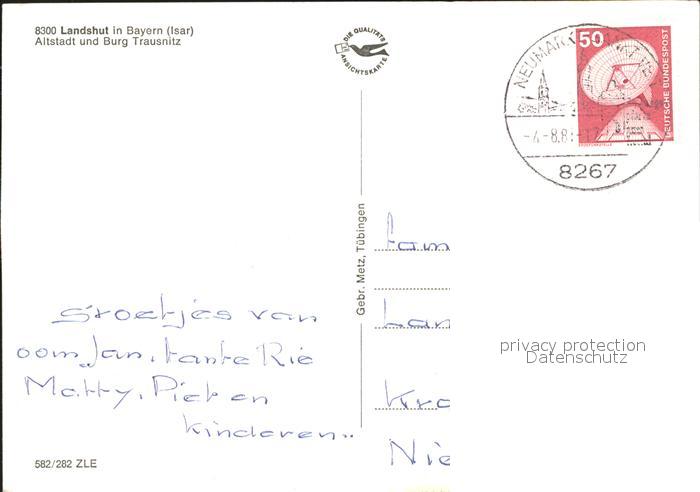 8300 Landshut in Bayern (Isar)
Altstadt und Burg Trausnitz
DIE QUALITÄTS
ANSICHTSKARTE
50
DEUTSCHE BUNDESPOST
NEUMARKT-SANKT
-4.-8.8
8267
Gebr. Metz, Tübingen
fam
Lan
Kra
Nie
groetjes van
oom Jan, tante Rie
Matty, Piet en
kinderen..
582/282 ZLE
privacy protection
Datenschutz